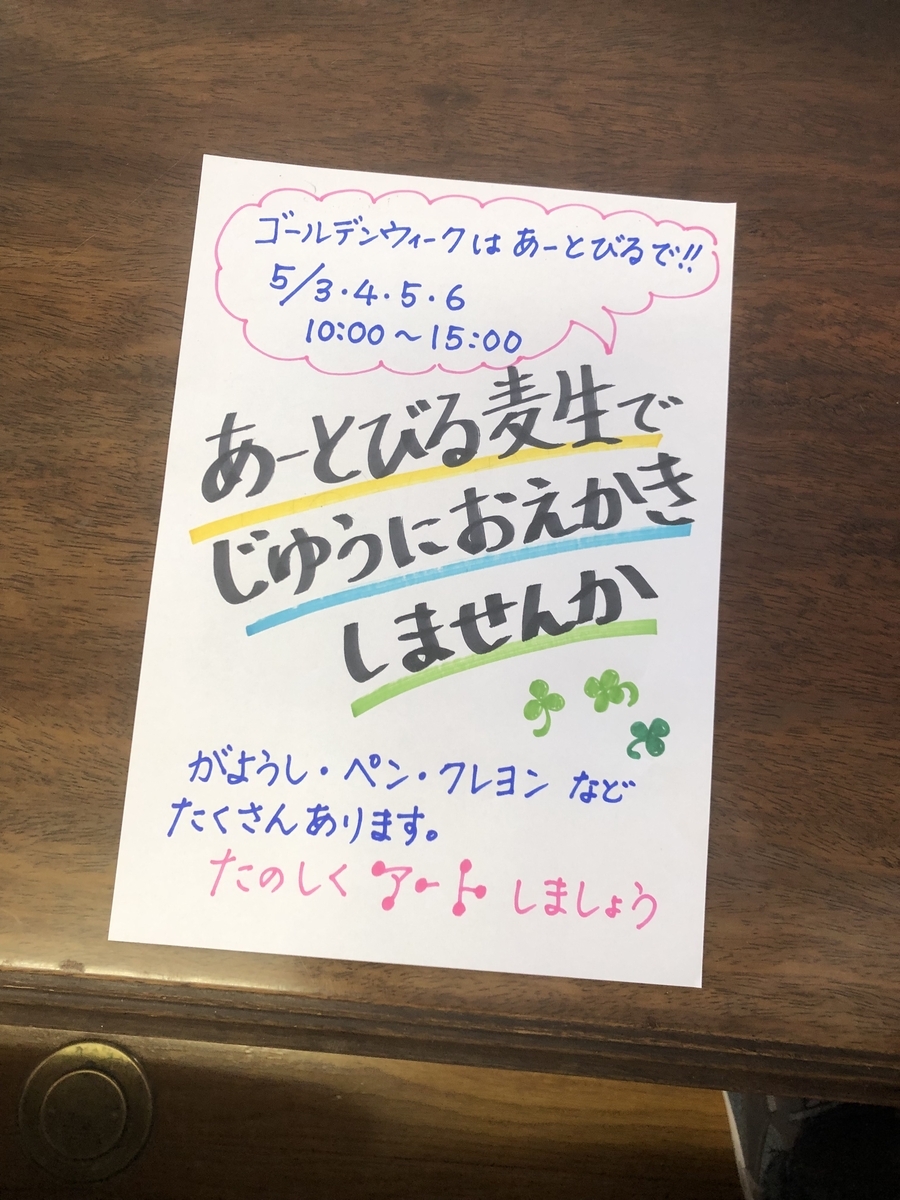 ゴールデンウィークは あーとびるで!!
5/3・4・5・6
10:00〜15:00
あーとびる麦生で
じゆうにおえかき
しませんか
がようし・ペン・クレヨン など
たくさんあります。
たのしく アート しましょう